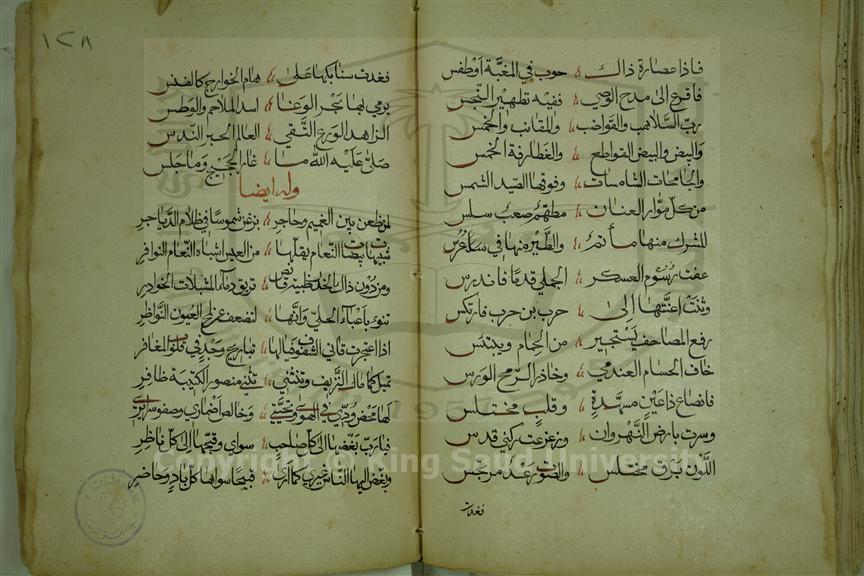 فاذا عصارة ذاك حوب في المغبة اوطفس
فافرع الى مدح الوصي ففيه تطهير النجس
ربّ السلاهب والقواضب والمقانب والخمس
والبيض والبيض القواطع والغطارفة الخمس
والجامحات الشامسات وفوقها الصيد الشمس
من كل موار العنان مطهم صعب سلس
للشرك منها مأتم والطير منها في عرس
عفت رسوم العسكر الجملي قدمًا فاندرس
وثنت اعنتها الى حرب بن حرب فارتكس
رفع المصاحف يستجير من الحمام ويبتئس
خاف الحسام العندمي وحاذر الرمح الورس
فانصاع ذا عين مسهدة وقلب مختلس
وسرت بارض النهروان فزعزعت ركني قدس
اللون برق مختلس والصوت رعد مرتجس
فغدت
١٢٨
فغدت سنابكها على هام الخوارج كالقبس
يرمي بها بحر الوغا اسد الملاحم والوطس
الزاهد الورع التقي العالم الحبر الندس
صلى عليه الله ما غار الحجيج وما جلس
وله ايضا
لمن ظعن بين الغميم وحاجر بزغن شموسا في ظلام الدياجر
شبيهات بيضات النعام يقلها من العيس اشباه النعام النوافر
ومن دون ذاك الخدر ظبية قانص تريق دماء المشبلات الخوادر
تنوء باعباء الحلي وانها لتضعف عن لمح العيون النواظر
اذا اعتجرت قاني الشفوف فيالها تباريح وجد في قلوب المغافر
تميل كما مال النزيف وتنثني تثني منصور الكتيبة ظافر
لها محض ودي في الهوى وتحنني وخالص اضماري وصفو سرائري
فيا رب بغضها الى كل صاحب سواي وقبحها الى كل ناظر
وبغض اليها الناس غيري كما ارى قبيحا سواها كل باد وحاضر
Copyright © King Saud University
1957